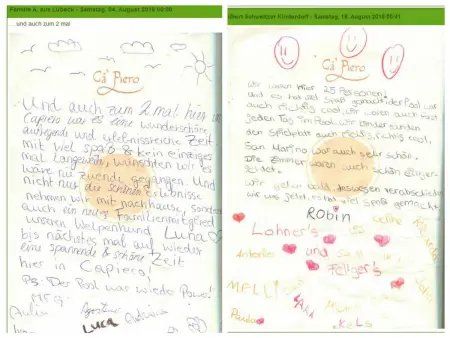 Familie A. aus Lübeck - Samstag, 04. August 2018 00:00
... und auch zum 2 mal
Ca' Piero
Und auch zum 2 mal hier in
Capiero war es eine wunderschöne,
aufregende und erlebnissreiche Zeit.
mit viel Spaß & kein einziges
mal Langeweile, wünschten wir es
wäre nie zuende gegangen. Und
nicht nur die schönen erlebnisse
nehmen wir mit nachhause, sondern
auch ein neues Familienmitglied
unseren Welpenhund Luna
bis nächstes mal auf wieder
eine spannende & schöne Zeit
hier in Capiero!
Ps: Der Pool war wieder Power!
MFG:
LUCA
Albert Schweitzer Kinderdorf - Samstag, 18. August 2018 00:01
Ca' Piero
Wir waren hier 25 Personen!
und es hat viel Spaß gemacht der Pool war
auch richtig cool, wir waren auch fast
jeden Tag im Pool. Wir Kinder fanden
den Spielplatz auch richtig, richtig cool,
San Marino war auch sehr schön.
Die Zimmer waren auch schön
wir gehen bald, deswegen verabschieden
wir uns jetzt, es hat viel Spaß gemacht,
ROBIN
Lohner's
Antonia und
Feliger's
MELLI
Paula
KELS